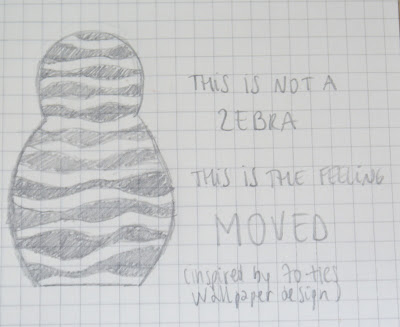 THIS IS NOT A
ZEBRA
THIS IS THE FEELING
MOVED
(inspired by 70-ties
wallpaper design)